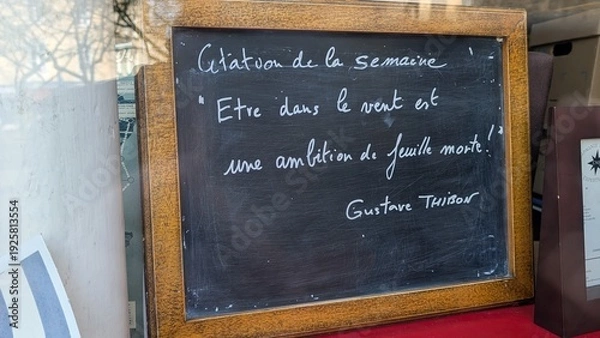 Citation de la semaine
"Etre dans le vent est
une ambition de feuille morte!"
Gustave THIBON
Adobe Stock | #1925813554